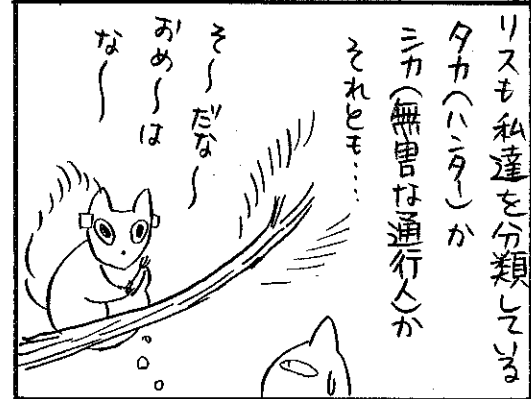 リスも私達を分類している
タカ(ハンター)か
シカ(無害な通行人)か
それとも・・・
そ〜だな〜
おめ〜は
な〜